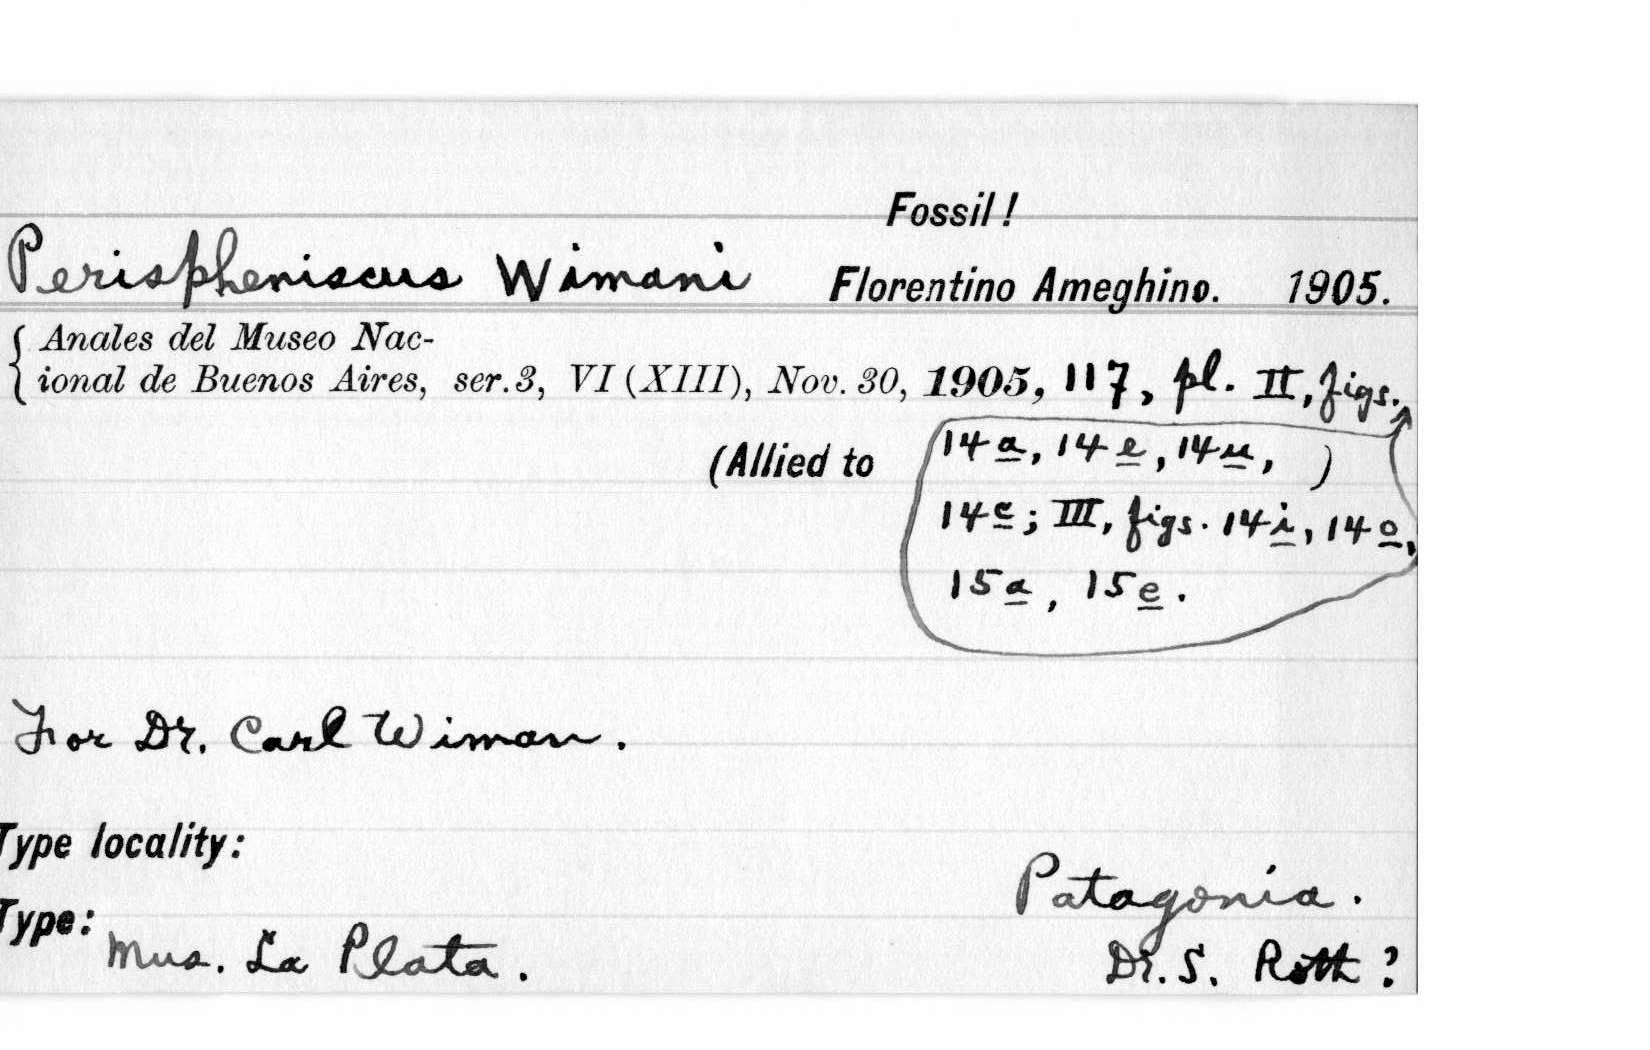 Fossil!
Perispheniscus Wimani Florentino Ameghino. 1905.
Anales del Museo Nac-
ional de Buenos Aires, ser.3, VI (XIII), Nov. 30, 1905, 117, pl. II, figs.
(Allied to 14a, 14e, 14u, )
14c; III, figs. 14i, 14o,
15a, 15e.
For Dr. Carl Wiman.
Type locality:
Patagonia.
Type: Mus. La Plata. Dr. S. Roth?